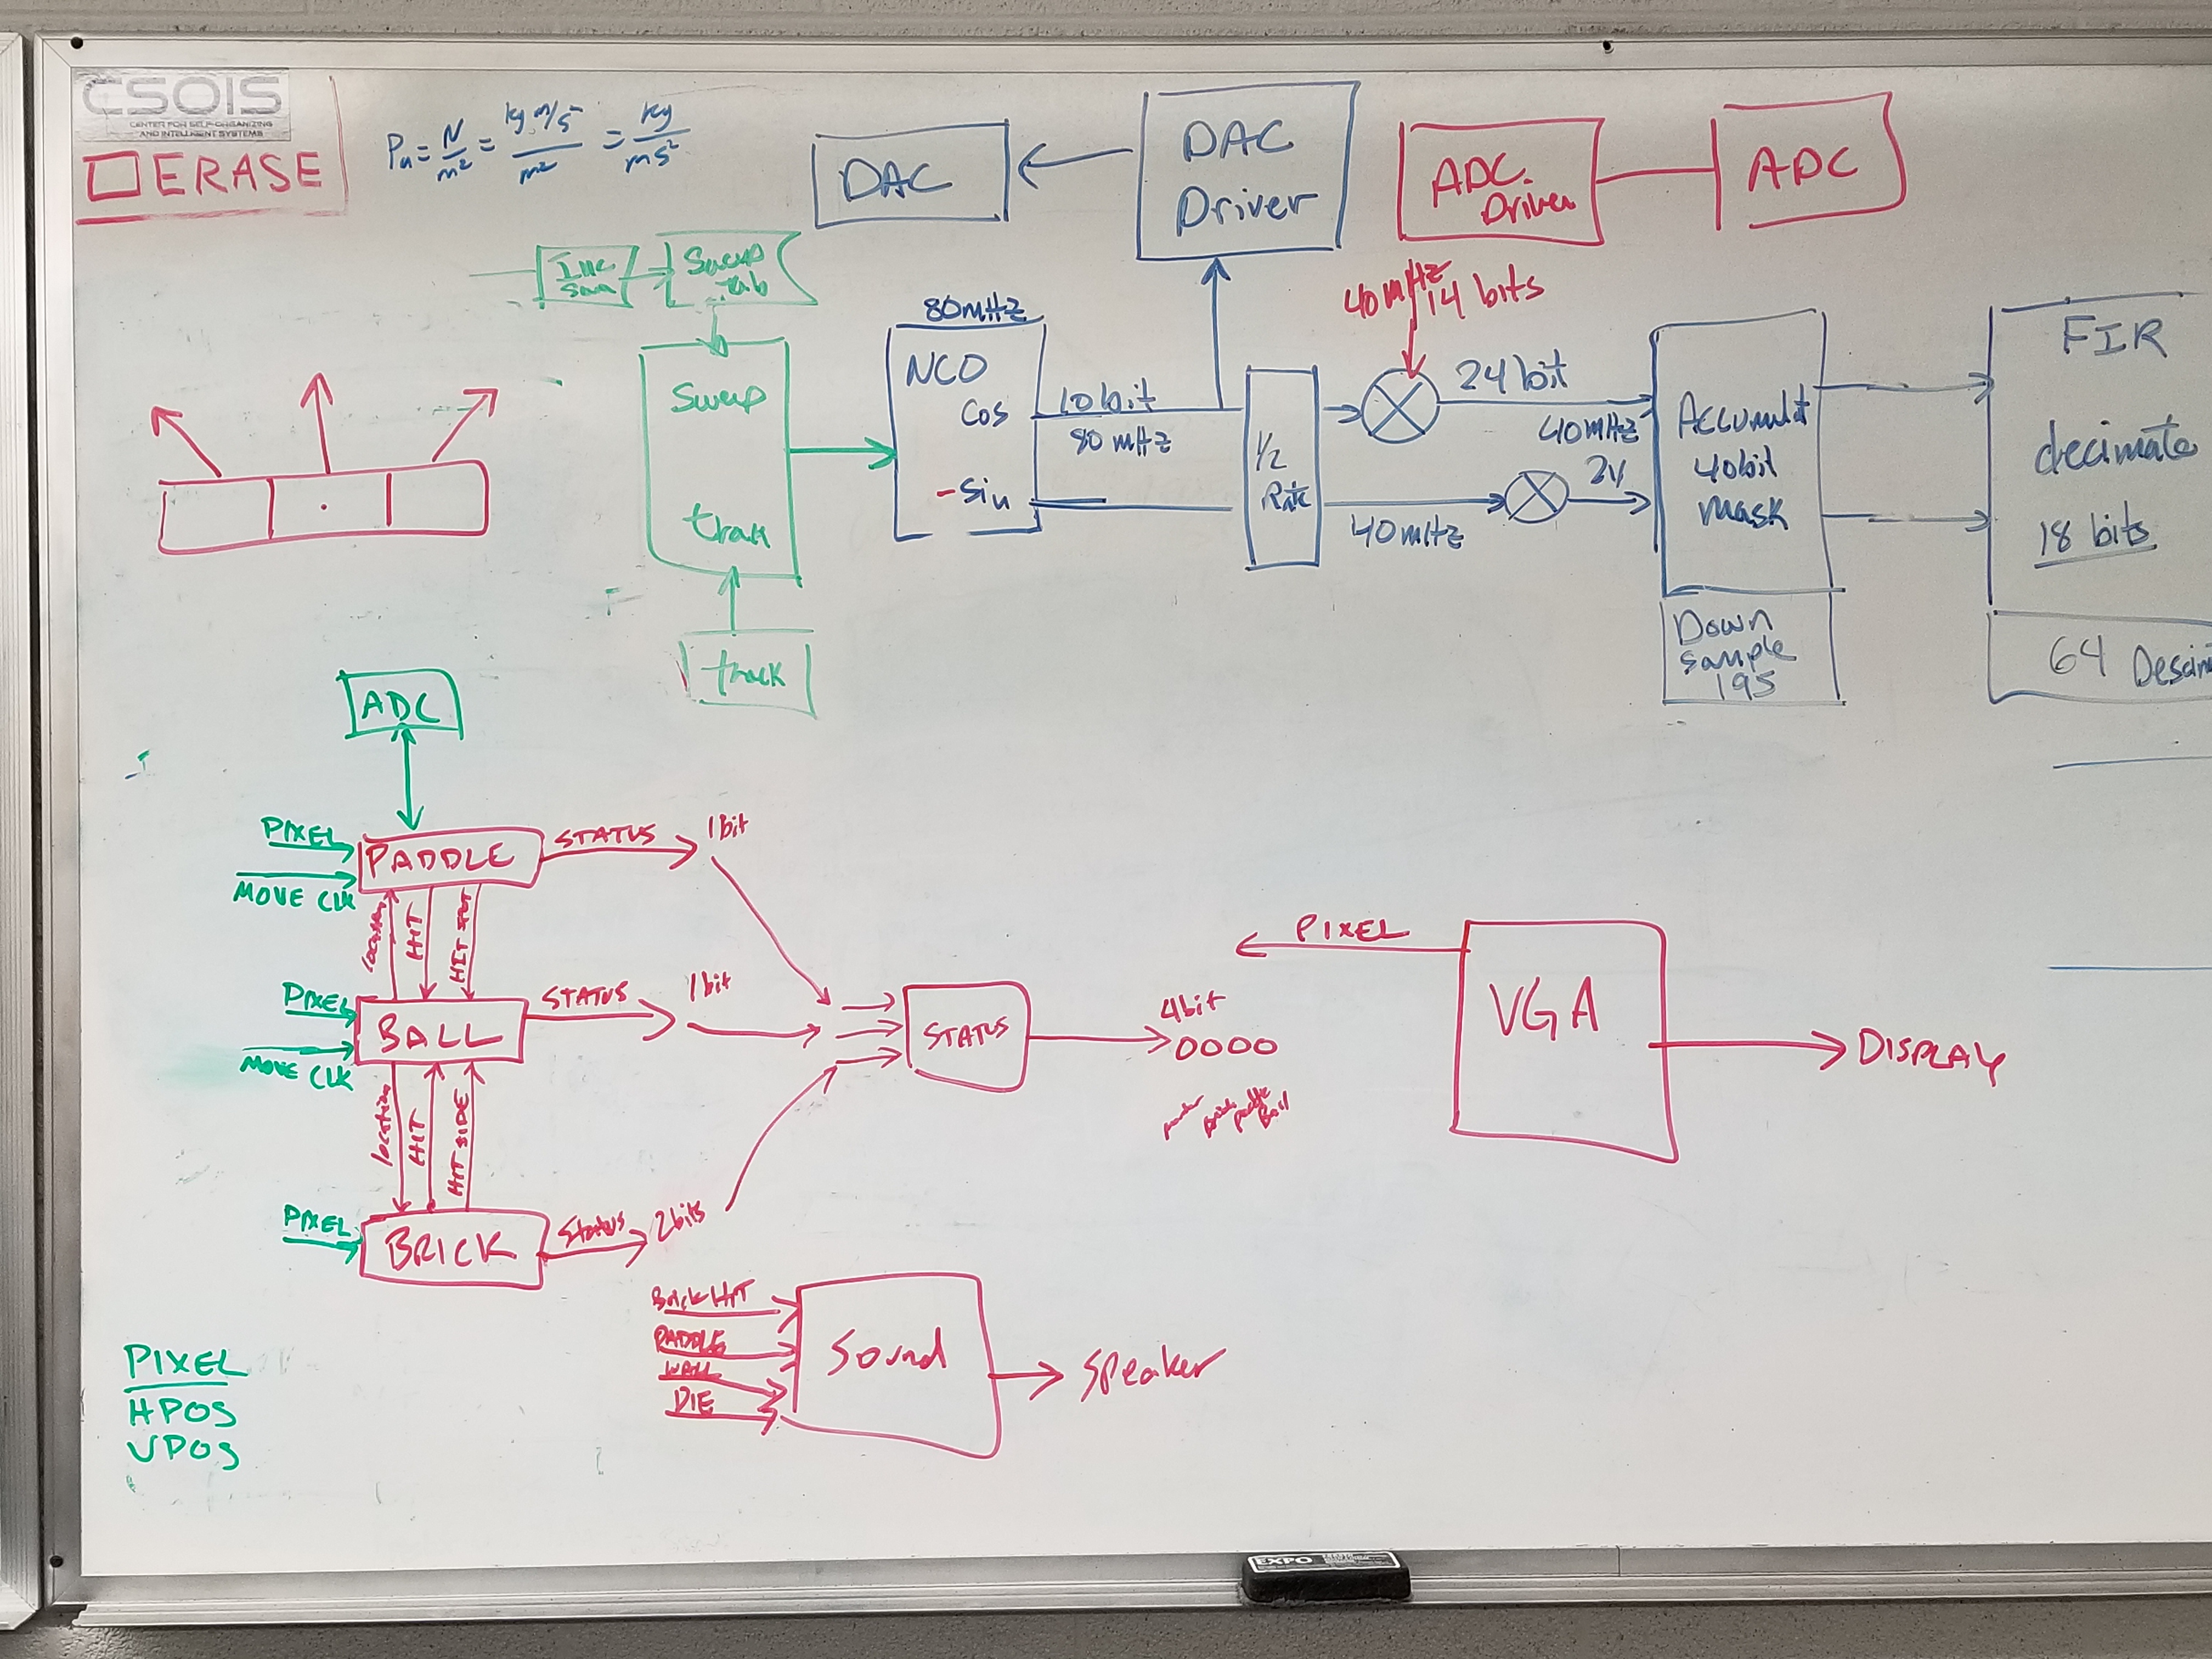 CSOIS
CENTER FOR SELF-ORGANIZING
AND INTELLIGENT SYSTEMS
ERASE
Pa = N/m² = kg m/s²/m² = kg/m s²
DAC
DAC
Driver
ADC
Driver
ADC
Sweep
tab
40 mHz
14 bits
80 mHz
NCO
Cos
-Sin
10 bit
80 mHz
1/2
Rate
24 bit
40 mHz
24
40 mHz
Accumulat
40bit
mask
Down
sample
195
FIR
decimate
18 bits
64
Sweep
track
ADC
PIXEL
MOVE CLK
PADDLE
STATUS
1 Bit
location
HIT
PIXEL
MOVE CLK
BALL
STATUS
1 bit
location
HIT
HIT SIDE
PIXEL
BRICK
Status
2 bits
STATUS
4bit
0000
paddle
Ball
PIXEL
VGA
DISPLAY
Brick HIT
PADDLE
WALL
DIE
Sound
Speaker
PIXEL
HPOS
VPOS
EXPO